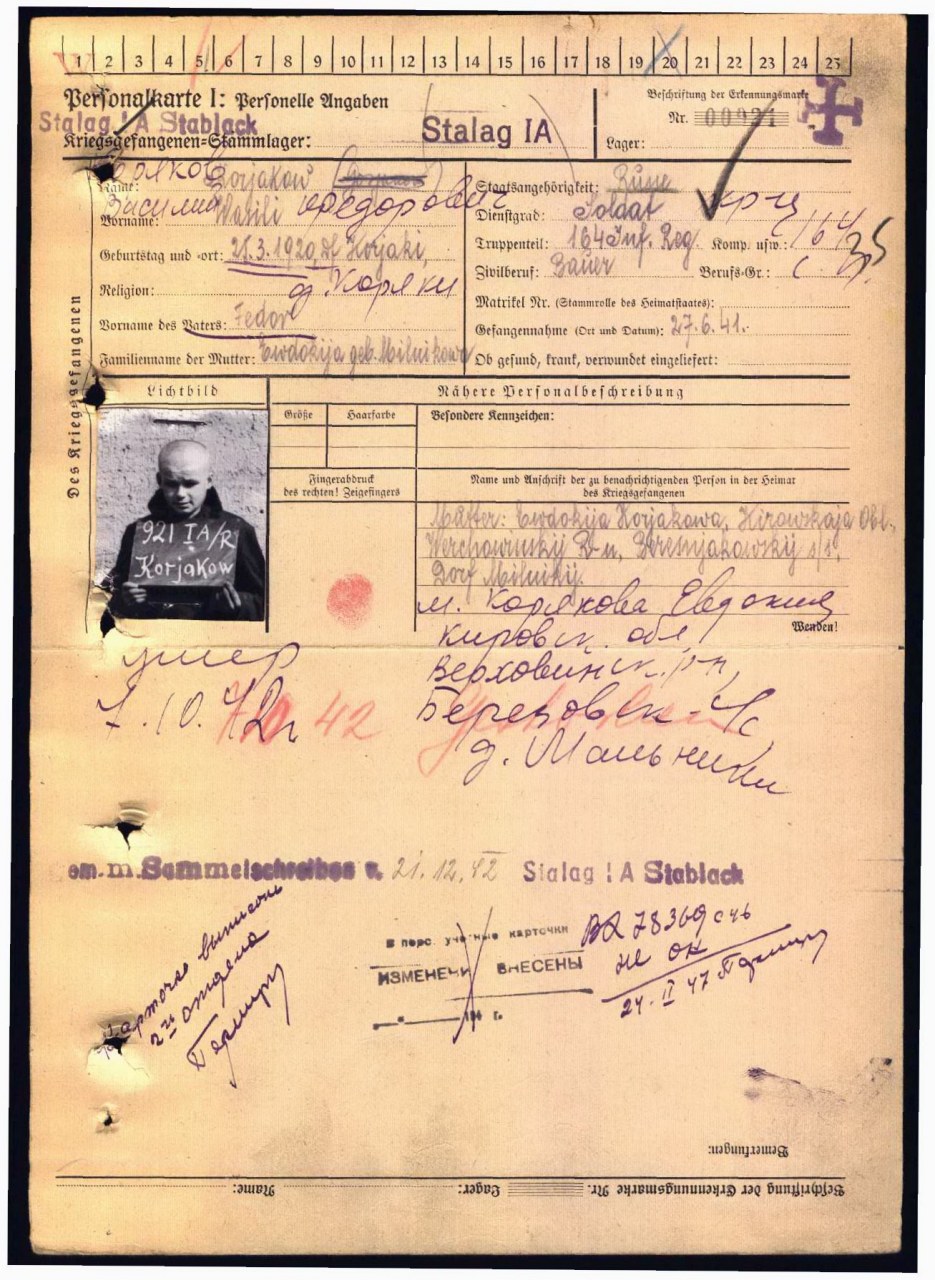 1 2 3 4 5 6 7 8 9 10 11 12 13 14 15 16 17 18 19 20 21 22 23 24 25
Personalkarte I: Personelle Angaben
Beschriftung der Erkennungsmarke
Nr. 00921
Stalag IA Stablack
Kriegsgefangenen-Stammlager: Stalag IA
Lager:
Des Kriegsgefangenen
Коряков
Name: Korjakow
Василий Федорович
Vorname: Wasili
Geburtstag und -ort: 28.3.1920, Df Korjaki,
д. Коряки
Religion:
Vorname des Vaters: Fedor
Familienname der Mutter: Ewdokija geb. Milnikowa
Staatsangehörigkeit: Russe
Dienstgrad: Soldat
Truppenteil: 164 Inf. Reg. Komp. usw.: 164
35
Zivilberuf: Bauer Berufs-Gr.:
Matrikel Nr. (Stammrolle des Heimatstaates):
Gefangennahme (Ort und Datum): 27.6.41.
Ob gesund, krank, verwundet eingeliefert:
Lichtbild
921 IA/R
Korjakow
Nähere Personalbeschreibung
Größe Haarfarbe Besondere Kennzeichen:
Fingerabdruck
des rechten! Zeigefingers
Name und Anschrift der zu benachrichtigenden Person in der Heimat
des Kriegsgefangenen
Mutter: Ewdokija Korjakowa, Kirowskaja Obl.,
Werchowinskij R-n, Beresnjakowskij s/s,
Dorf Milniki.
м. Корякова Евдокия
Wenden!
Кировск. обл,
Верховинск. рн,
Березовск- с/с
д. Мальники
умер
7.10.42г
42
em. m. Sammelschreiben v. 21.12.42 Stalag IA Stablack
Карточка выписана
2м отдела
В перс. учетные карточки
ИЗМЕНЕНИЯ ВНЕСЕНЫ
194 г.
ВА 78369
не ок
24-II 47
Bemerkungen:
Beschriftung der Erkennungsmarke Nr. Lager: Name: